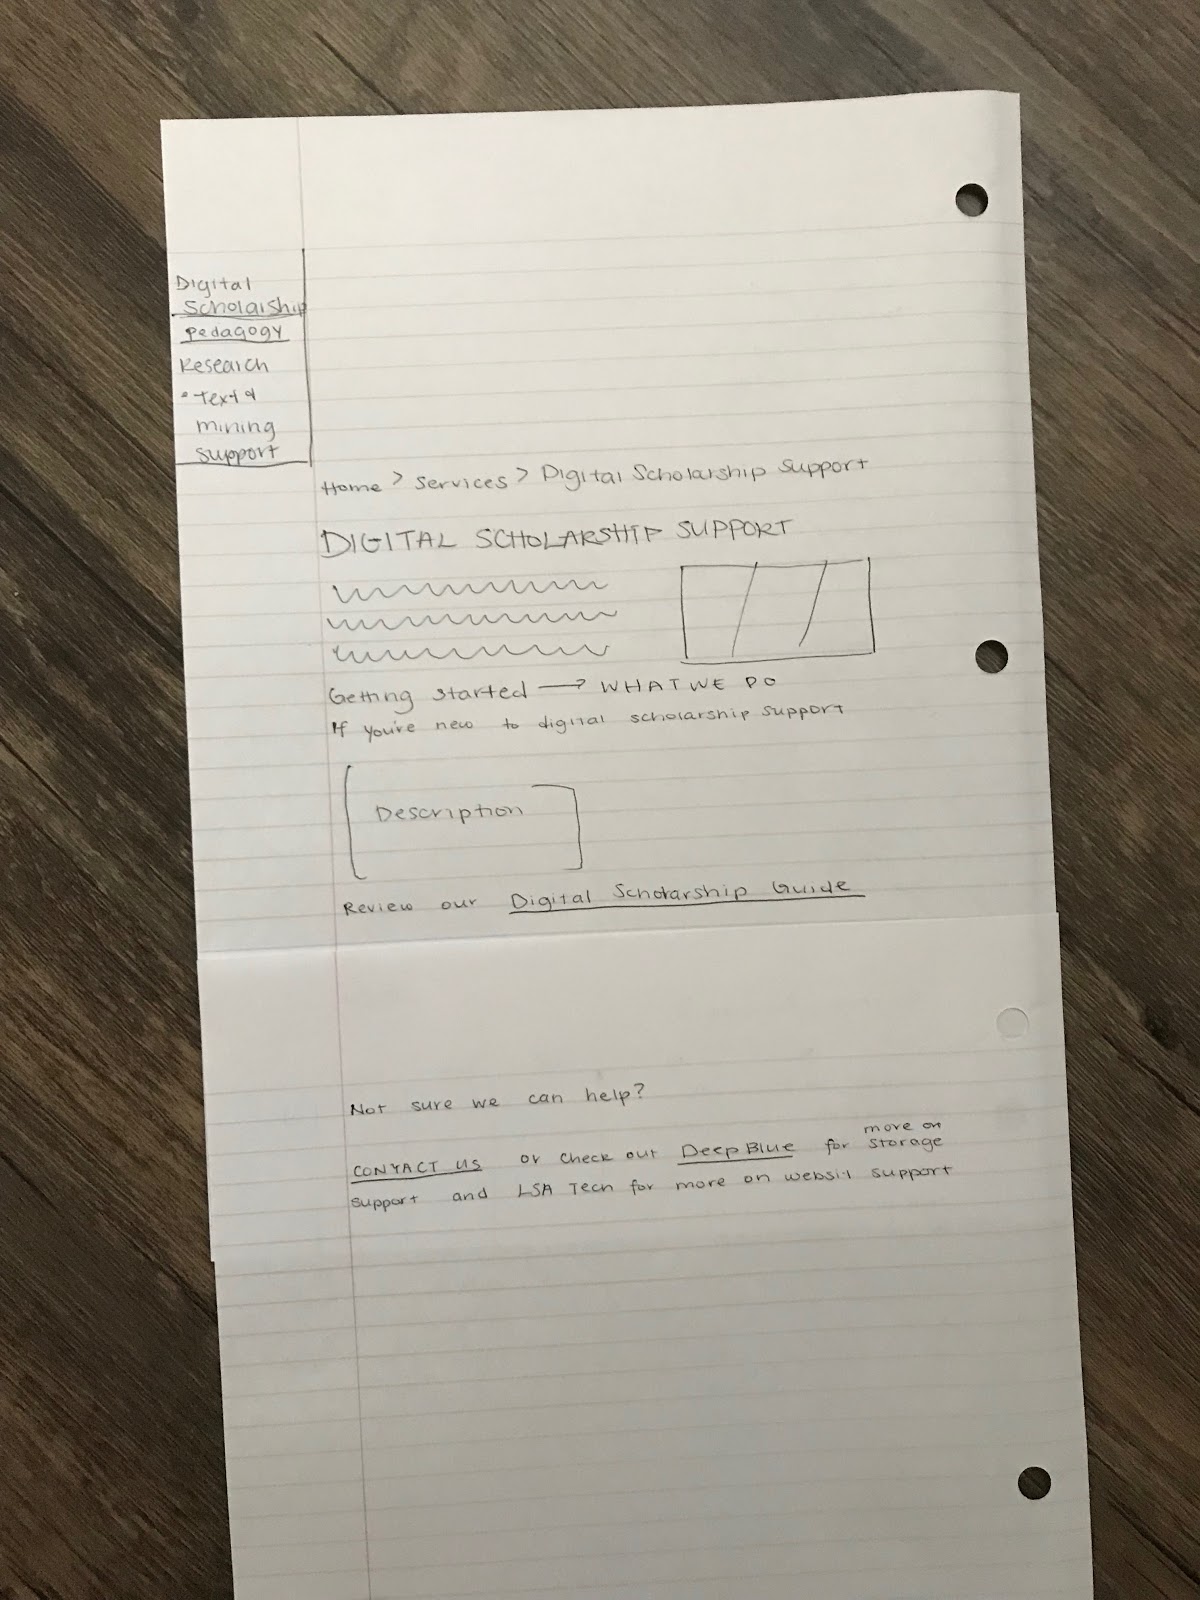 Digital
Scholarship
Pedagogy
Research
• Text &
mining
support
Home > Services > Digital Scholarship Support
DIGITAL SCHOLARSHIP SUPPORT
Getting started → WHAT WE DO
If you're new to digital scholarship support
Description
Review our Digital Scholarship Guide
Not sure we can help?
more on
CONTACT US or check out Deep Blue for storage
support and LSA Tech for more on websit support